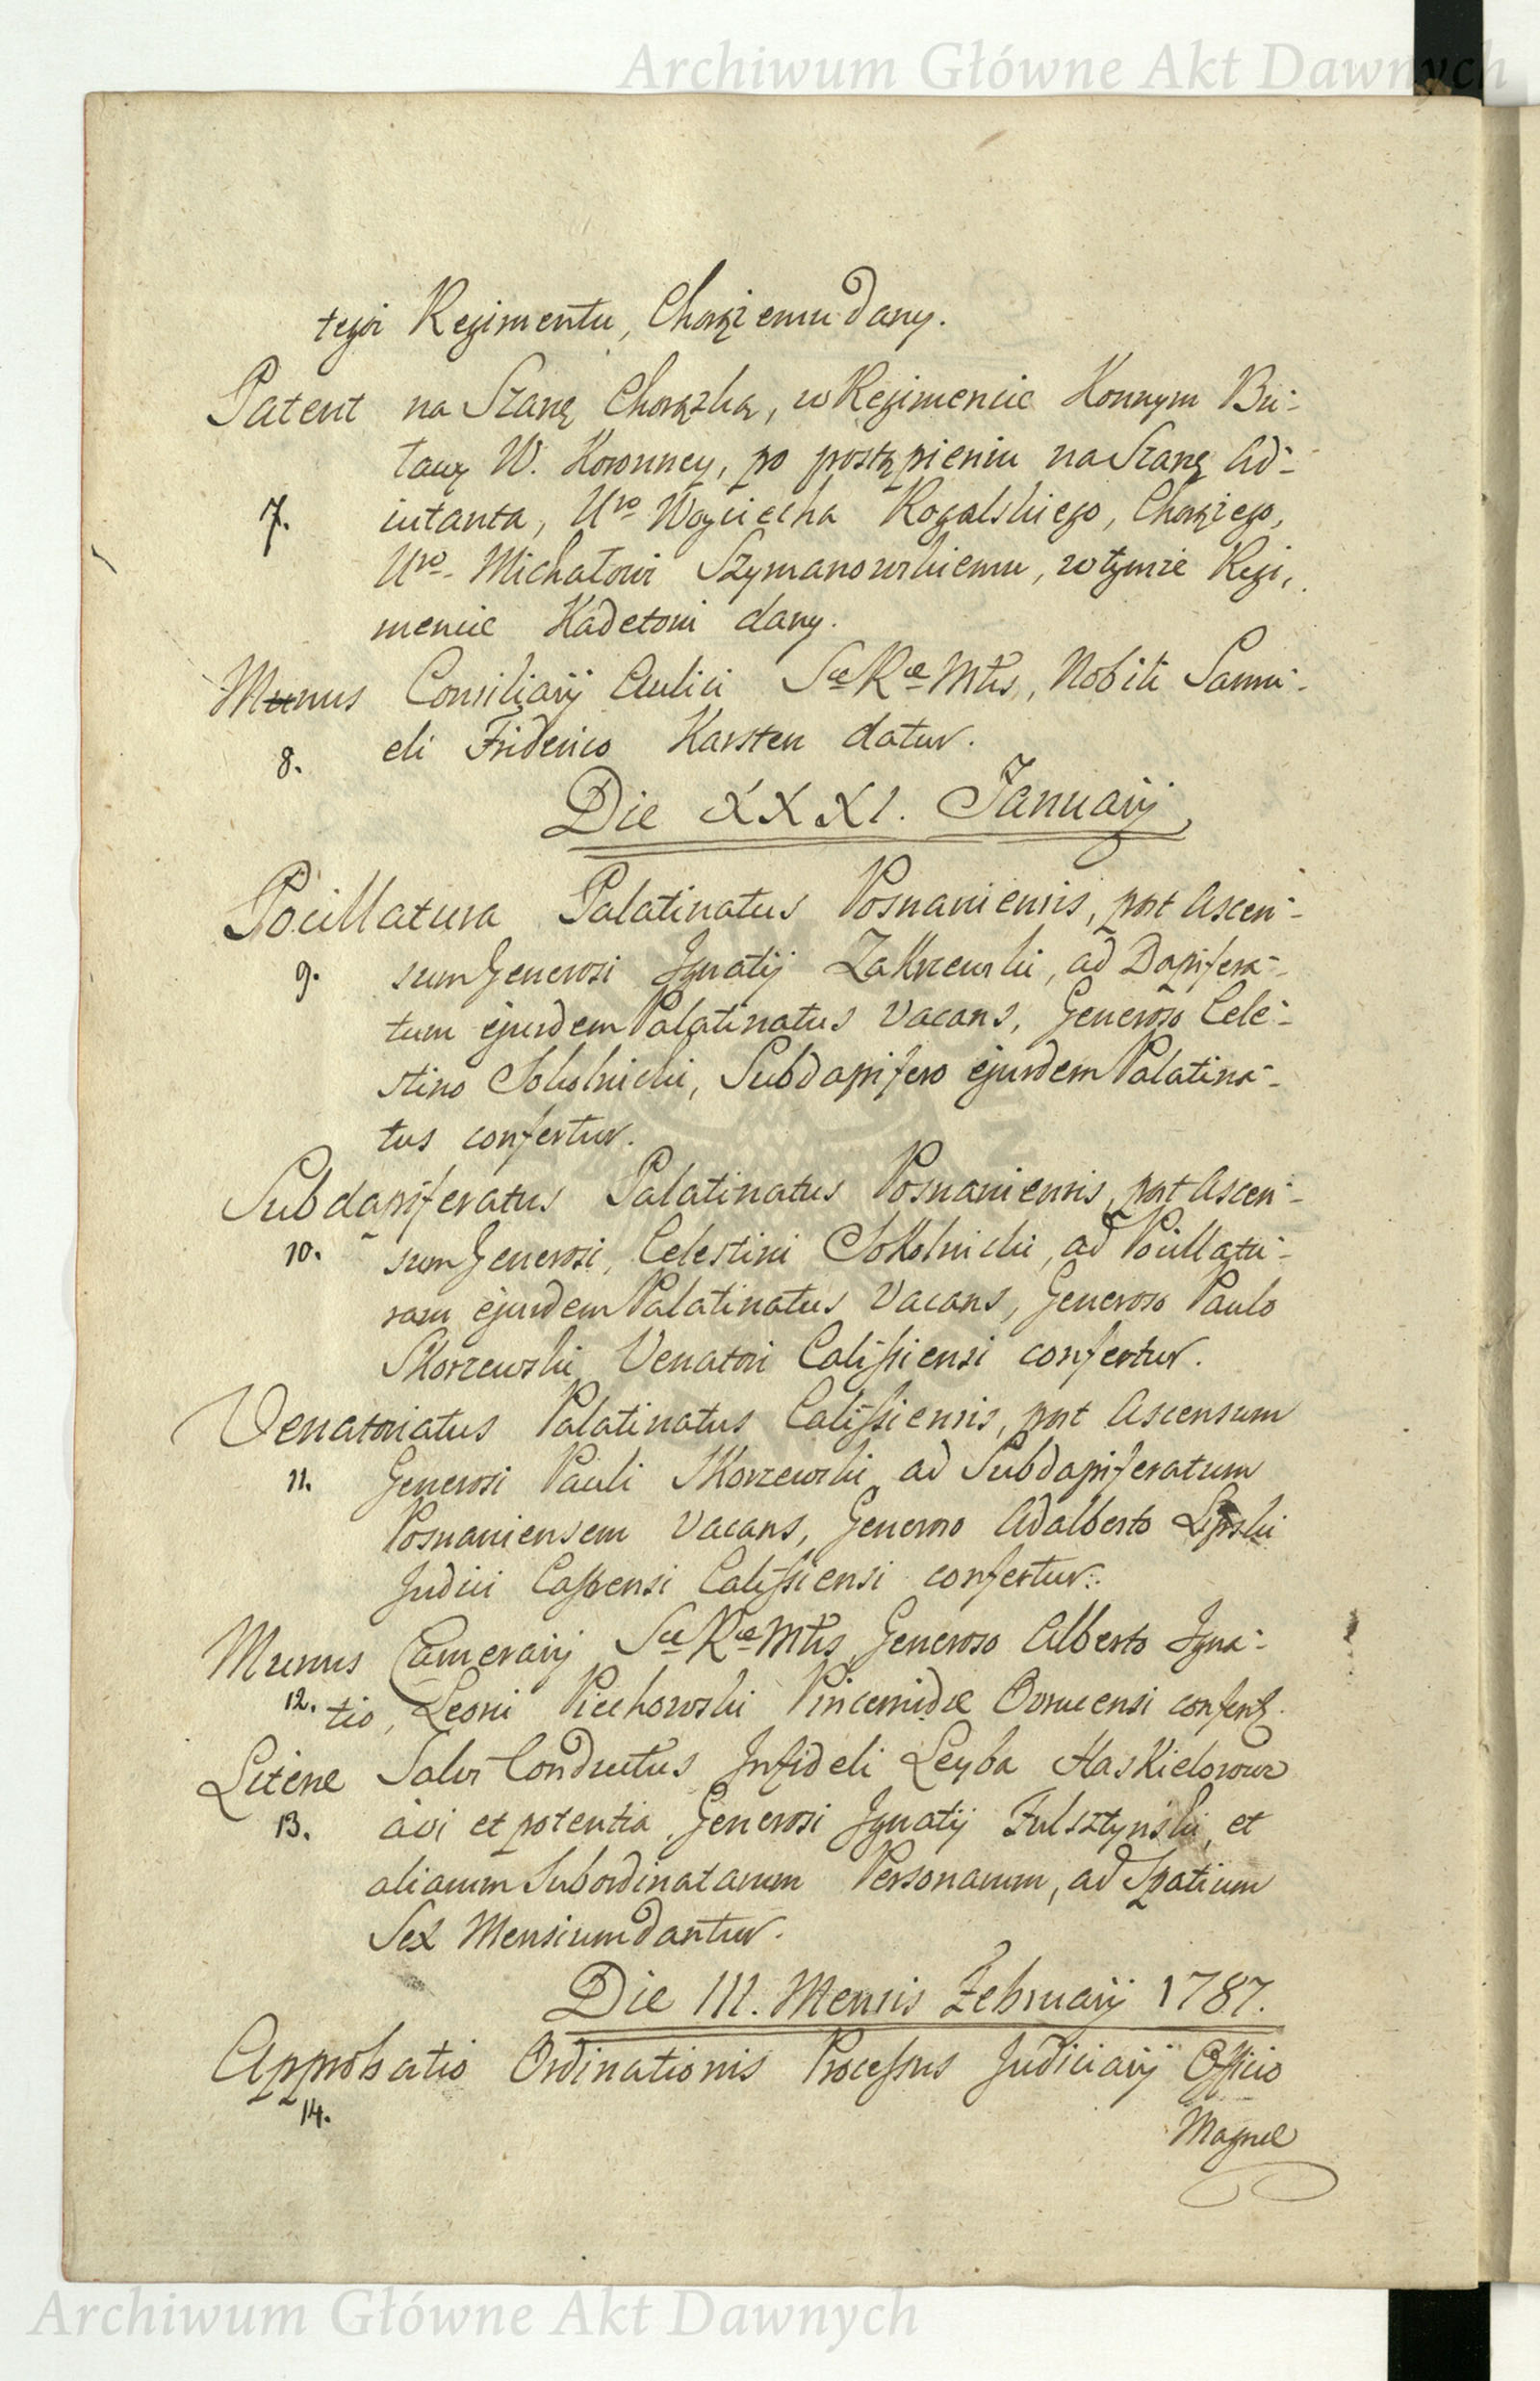 Archiwum Główne Akt Dawnych
tegoż Regimentu, Chorążemu dany.
Patent na Szarżę Chorążką, w Regimencie Konnym Bu-
ławy W. Koronney, po postąpieniu na Szarżę Ad-
7. iutanta, Uro Woyciecha Rogalskiego, Chorążego,
Uro Michałowi Szymanowskiemu, w tymże Regi,
mencie Kadetowi dany.
Munus Consiliarij Aulici Sæ Ræ Mtis, Nobili Samu-
8. eli Friderico Karsten datur.
Die XXXI. Januarij
Pocillatura Palatinatus Posnaniensis, post Ascen-
9. sum Generosi Ignatij Zakrzewski, ad Dapifera-
tum ejusdem Palatinatus vacans, Generoso Cele-
stino Sokolnicki, Subdapifero ejusdem Palatina-
tus confertur.
Subdapiferatus Palatinatus Posnaniensis, post Ascen-
10. sum Generosi, Celestini Sokolnicki, ad Pocillatu-
ram ejusdem Palatinatus vacans, Generoso Paulo
Skorzewski Venatori Calissiensi confertur.
Venatoriatus Palatinatus Calissiensis, post Ascensum
11. Generosi Pauli Skorzewski ad Subdapiferatum
Posnaniensem vacans, Generoso Adalberto Lipski
Judici Castrensi Calissiensi confertur.
Munus Camerarij Sæ Ræ Mtis Generoso Alberto Igna-
12. tio, Leoni Piechowski Pincernidæ Owrucensi confert.
Literæ Salvi Conductus Infideli Leyba Haskielowicz
13. a vi et potentia Generosi Ignatij Fulsztynski, et
aliarum Subordinatarum Personarum, ad Spatium
Sex Mensium dantur.
Die III. Mensis Februarij 1787.
Approbatio Ordinationis Processus Judiciarij Officio
14.
Magnæ
Archiwum Główne Akt Dawnych